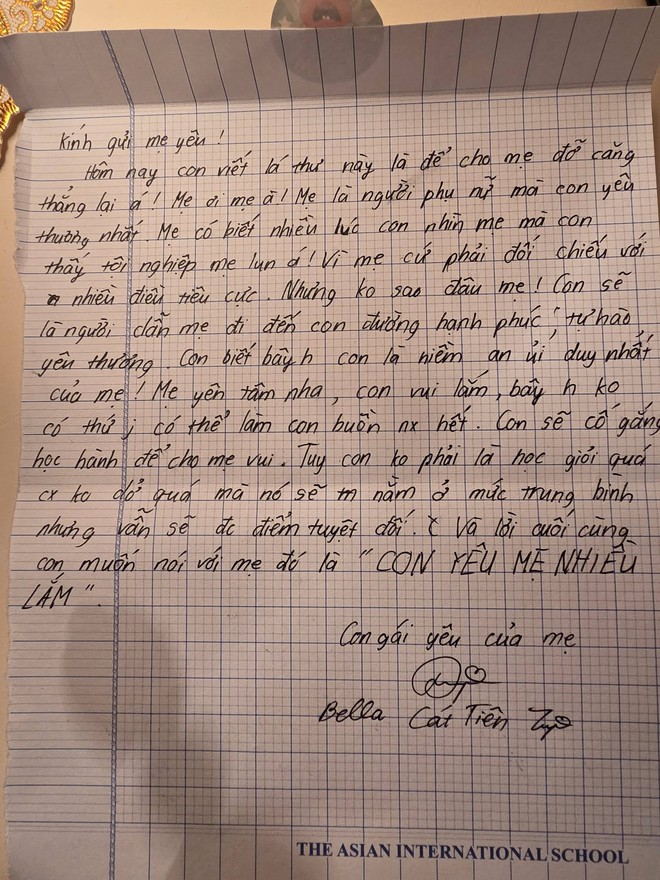 Kính gửi mẹ yêu !
Hôm nay con viết lá thư này là để cho mẹ đỡ căng
thẳng lại á ! Mẹ ơi mẹ à ! Mẹ là người phụ nữ mà con yêu
thương nhất. Mẹ có biết nhiều lúc con nhìn mẹ mà con
thấy tội nghiệp mẹ lun á ! Vì mẹ cứ phải đối chiếu với
nhiều điều tiêu cực. Nhưng ko sao đâu mẹ ! Con sẽ
là người dẫn mẹ đi đến con đường hạnh phúc, tự hào
yêu thương. Con biết bây h con là niềm an ủi duy nhất
của mẹ ! Mẹ yên tâm nha, con vui lắm, bây h ko
có thứ j có thể làm con buồn nx hết. Con sẽ cố gắng
học hành để cho mẹ vui. Tuy con ko phải là học giỏi quá
cx ko dở quá mà nó sẽ nằm ở mức trung bình
nhưng vẫn sẽ đc điểm tuyệt đối. Và lời cuối cùng
con muốn nói với mẹ đó là " CON YÊU MẸ NHIỀU
LẮM ".
Con gái yêu của mẹ
Bella Cát Tiên
THE ASIAN INTERNATIONAL SCHOOL